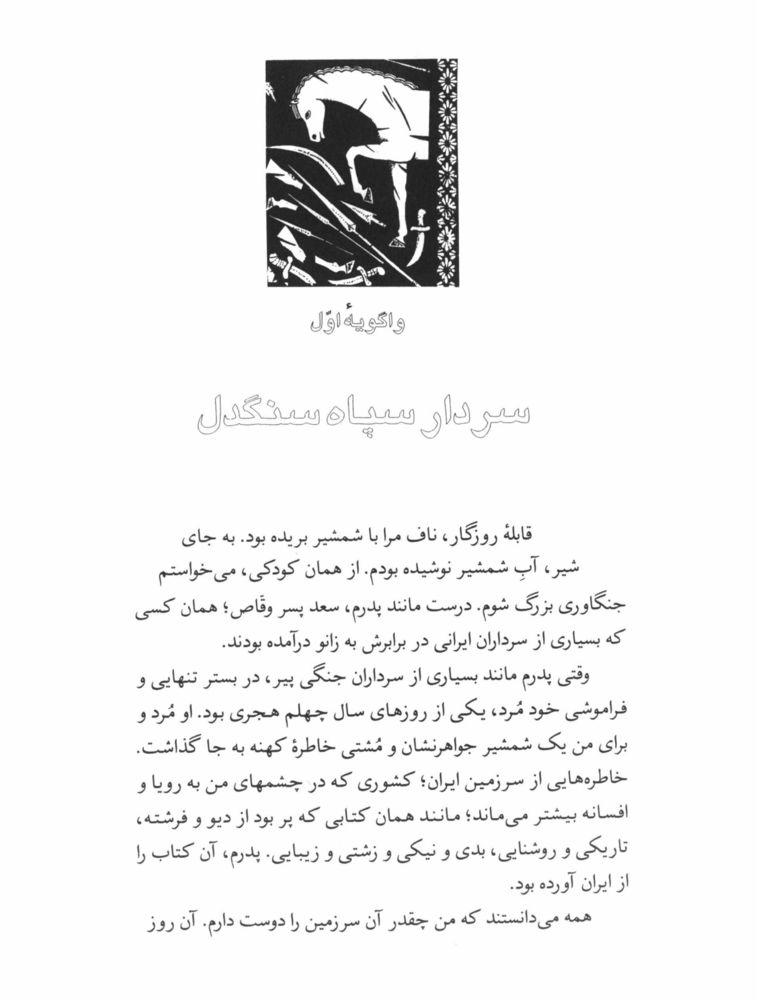 واگویهٔ اوّل
سردار سپاه سنگدل
قابلهٔ روزگار، ناف مرا با شمشیر بریده بود. به جای
شیر، آبِ شمشیر نوشیده بودم. از همان کودکی، می‌خواستم
جنگاوری بزرگ شوم. درست مانند پدرم، سعد پسر وقّاص؛ همان کسی
که بسیاری از سرداران ایرانی در برابرش به زانو درآمده بودند.
وقتی پدرم مانند بسیاری از سرداران جنگی پیر، در بستر تنهایی و
فراموشی خود مُرد، یکی از روزهای سال چهلم هجری بود. او مُرد و
برای من یک شمشیر جواهرنشان و مُشتی خاطرهٔ کهنه به جا گذاشت.
خاطره‌هایی از سرزمین ایران؛ کشوری که در چشمهای من به رویا و
افسانه بیشتر می‌ماند؛ مانند همان کتابی که پر بود از دیو و فرشته،
تاریکی و روشنایی، بدی و نیکی و زشتی و زیبایی. پدرم، آن کتاب را
از ایران آورده بود.
همه می‌دانستند که من چقدر آن سرزمین را دوست دارم. آن روز